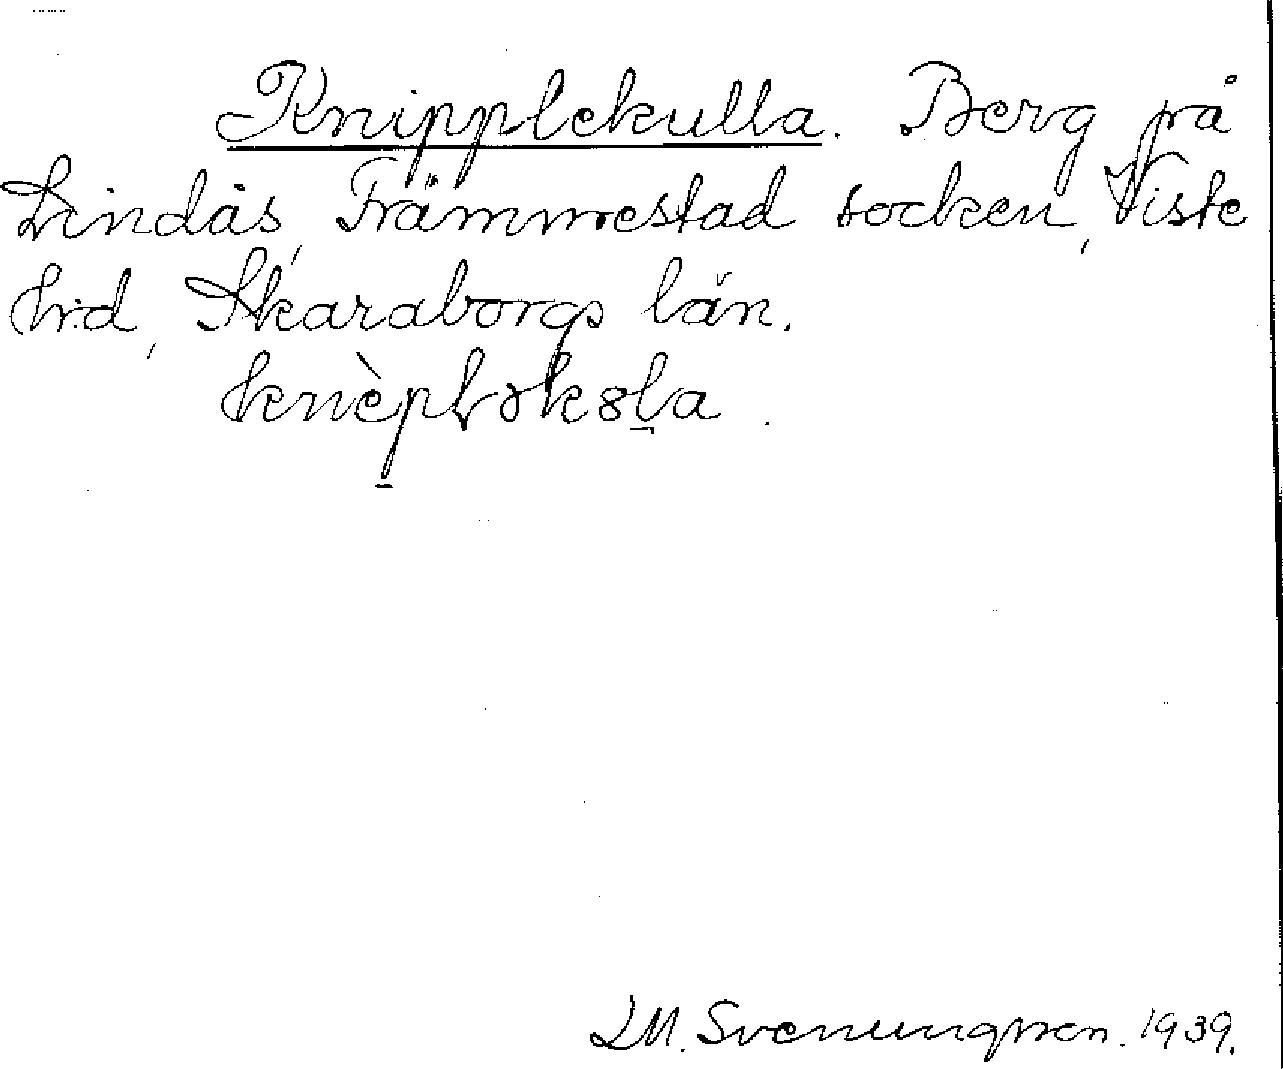 Knipplekulla. Berg på
Lindås, Främmestad socken, Viste
hrd, Skaraborgs län.
knèplǝkȣla.
LM. Svenungsson. 1939.